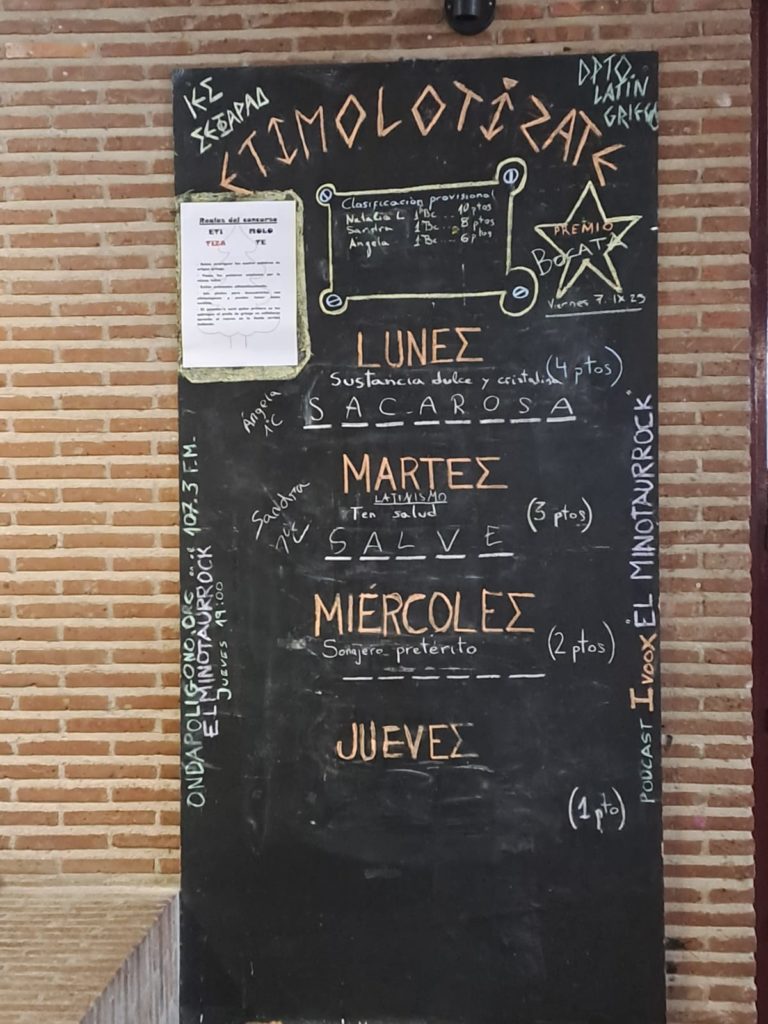 ΙΕΣ
ΣΕΦΑΡΑΔ
DPTO.
LATIN
GRIEGO
ETIMOLOTÍZATE
Reglas del concurso
ETI MOLO
TIZA TE
Clasificación provisional
Natalia L 1ºBc ... 10 ptos
Sandra 1ºBc ... 8 ptos
Ángela 1ºBc ... 6 ptos
PREMIO
BOCATA
Viernes 7. IX 23
LUNEΣ
Sustancia dulce y cristalina (4 ptos)
Ángela
1ºC
SACAROSA
MARTEΣ
LATINISMO
Ten salud (3 ptos)
Sandra
SALVE
MIÉRCOLEΣ
Sonajero pretérito (2 ptos)
JUEVEΣ
(1 pto)
ONDAPOLIGONO.ORG en el 107.3 F.M.
EL MINOTAURROCK
JUEVES 19:00
PODCAST IVOOX "EL MINOTAURROCK"